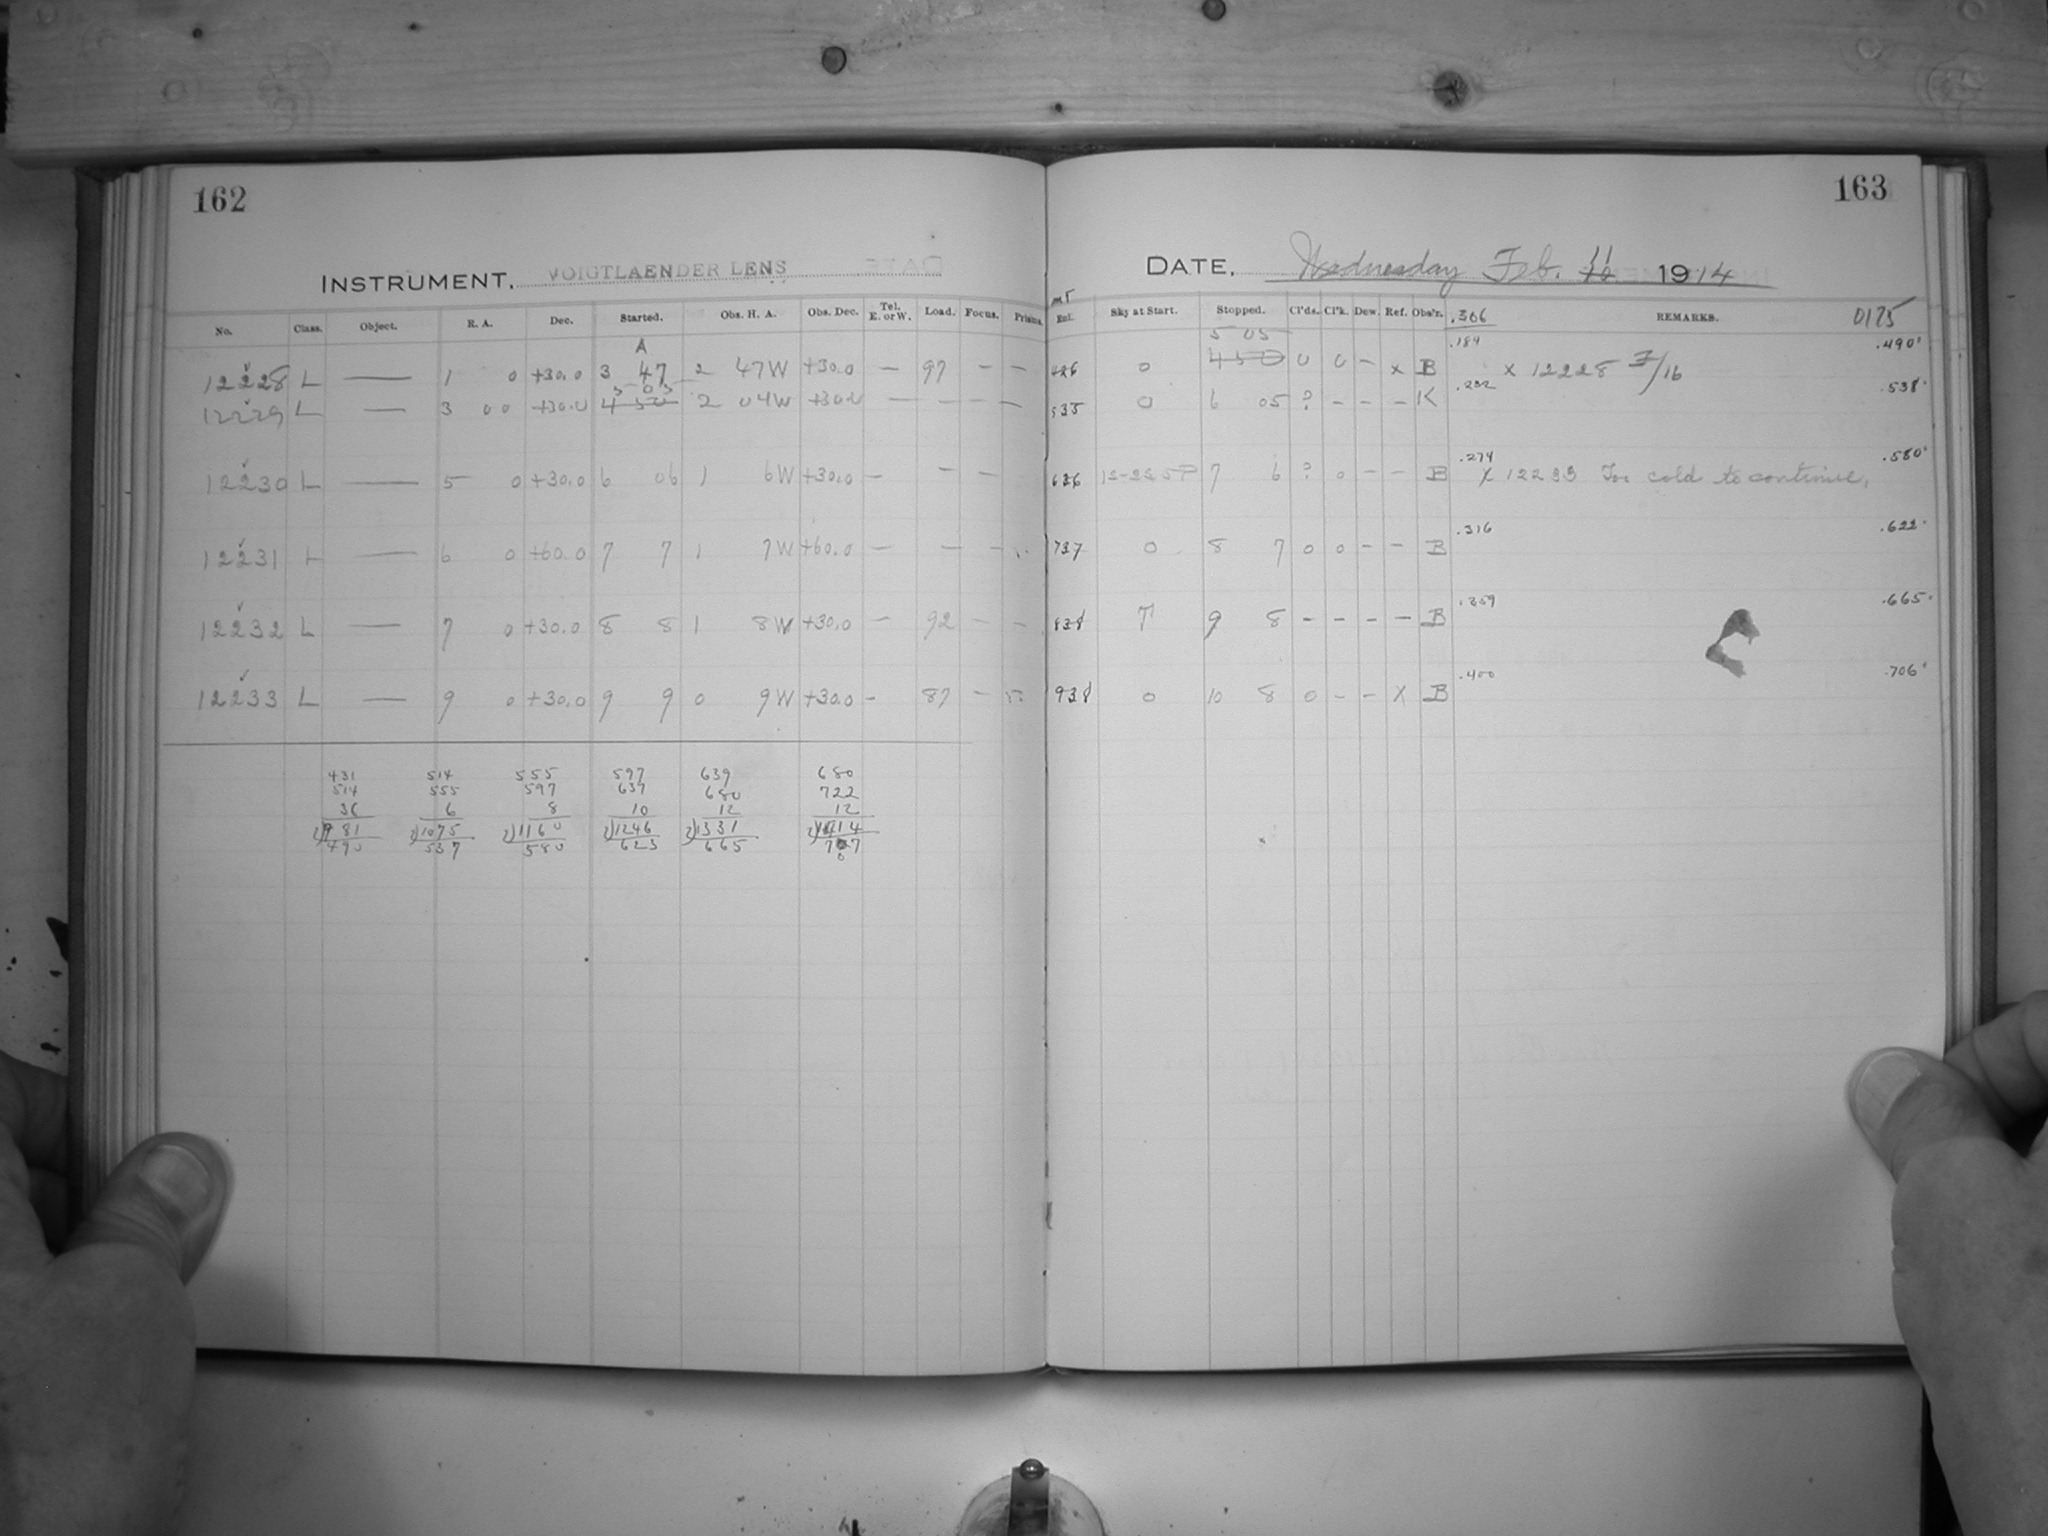 162
INSTRUMENT, VOIGTLAENDER LENS
No. Class. Object. R. A. Dec. Started. Obs. H. A. Obs. Dec. Tel. E. or W. Load. Focus. Prisms.
A
12228 L — 1 0 +30.0 3 47 2 47W +30.0 — 97 - -
5 05
12229 L — 3 00 +30.0 4 50 2 04W +30.0 — - - -
12230 L — 5 0 +30.0 6 06 1 6W +30.0 - - -
12231 L — 6 0 +60.0 7 7 1 7W +60.0 - - -
12232 L — 7 0 +30.0 8 8 1 8W +30.0 - 92 - -
12233 L — 9 0 +30.0 9 9 0 9W +30.0 - 87 -
431 514 555 597 639 680
514 555 597 637 680 722
36 6 8 10 12 12
2)981 2)1075 2)1160 2)1246 2)1331 2)1414
490 537 580 623 665 707
163
DATE, Wednesday Feb. 11 1914
Exl. Sky at Start. Stopped. Cl'ds. Cl'k. Dew. Ref. Obs'r. .306 REMARKS. 0175
5 05
426 0 450 0 0 - x B .184 x 12228 3/16 .490
535 0 6 05 ? - - - K .232 .538
636 12-255P 7 6 ? 0 - - B .274 x 12233 Too cold to continue, .580
737 0 8 7 0 0 - - B .316 .622
838 T 9 8 - - - - B .359 .665
938 0 10 8 0 - - X B .400 .706